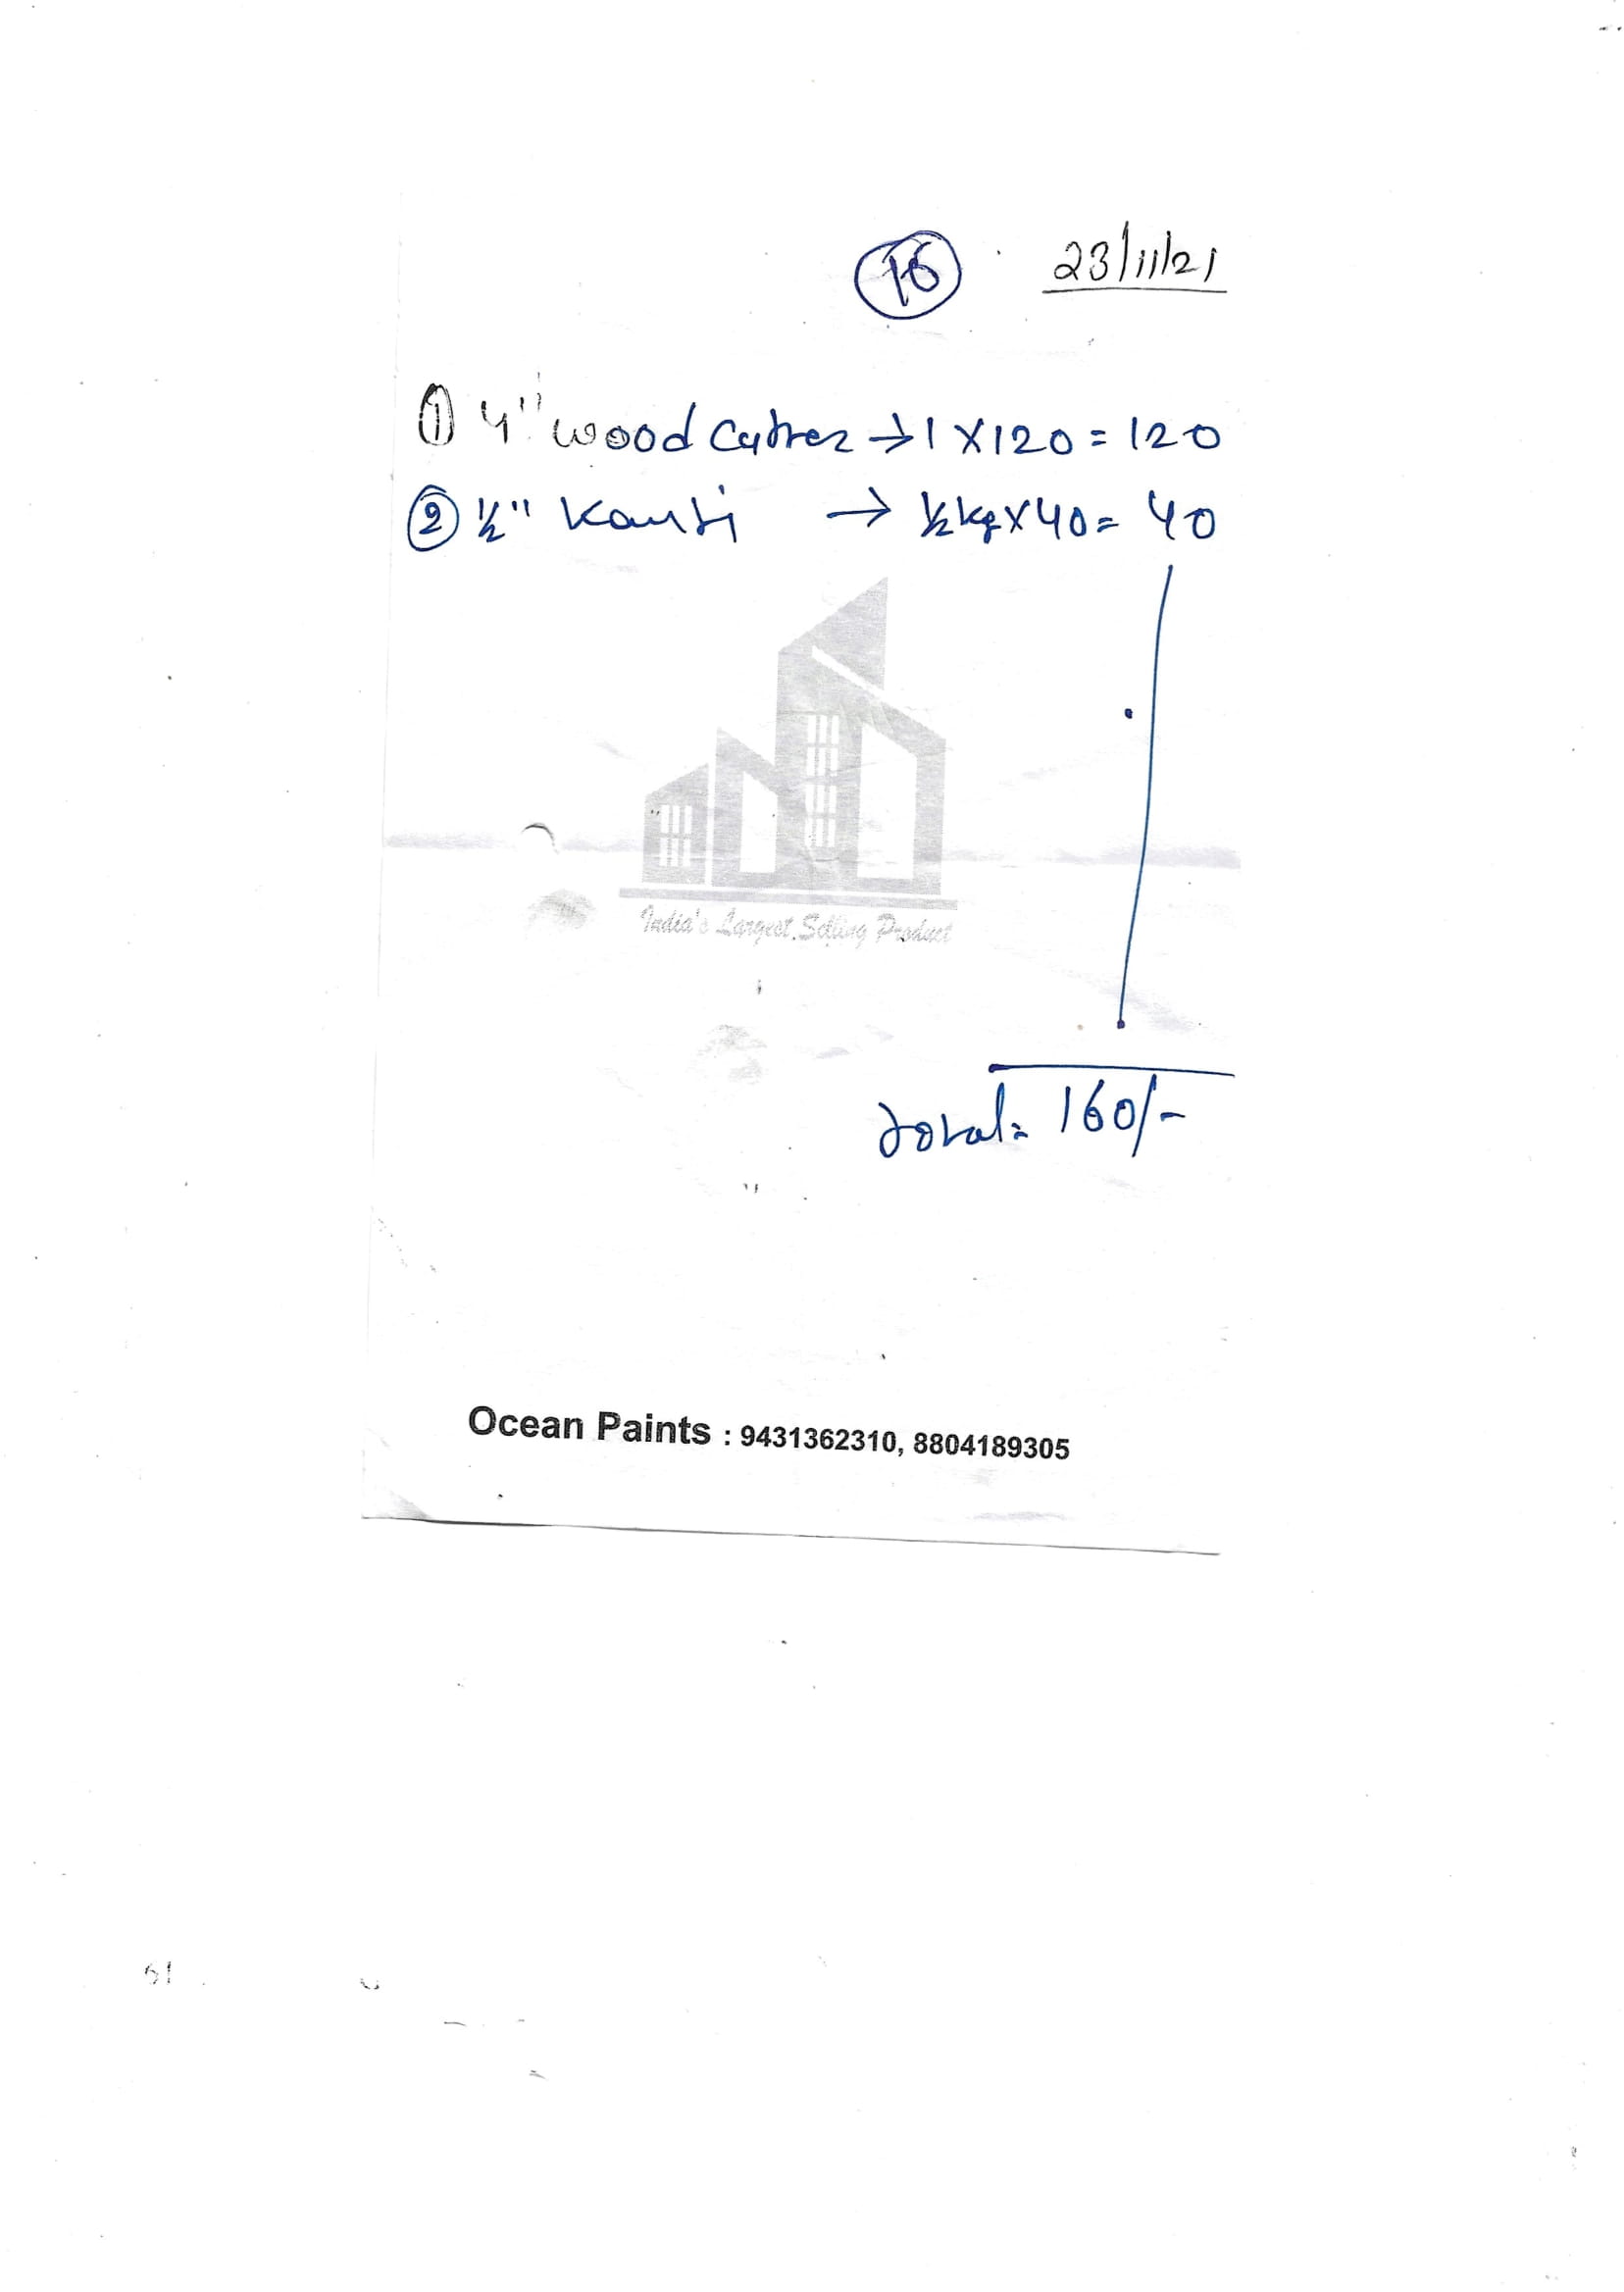 16 23/11/21
① 4" wood Cutter → 1 X 120 = 120
② ½" Kanti → ½ kg X 40 = 40
India's Largest Selling Product
Total = 160/-
Ocean Paints : 9431362310, 8804189305